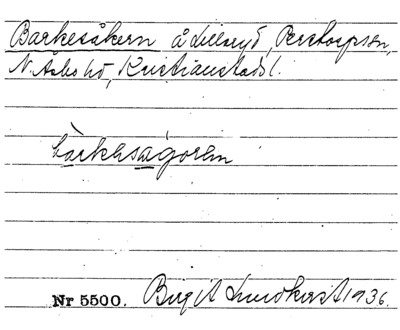 Barkesåkern å Lillaryd, Perstorpssn,
N. Åsbo hd, Kristianstads l.
bàrkɩsagorɩn
Nr 5500. Birgit Lundkvist 1936.